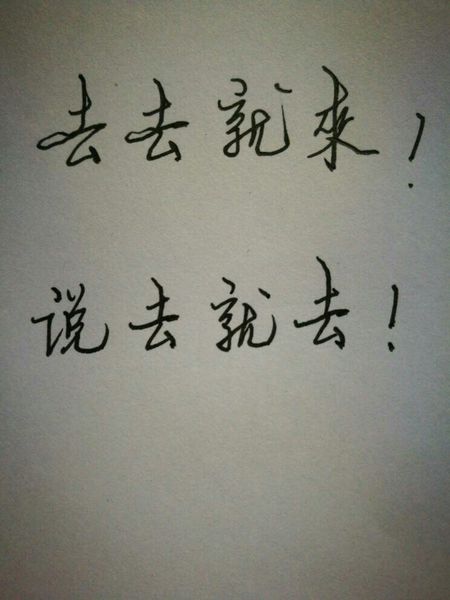 去去就來！
说去就去！